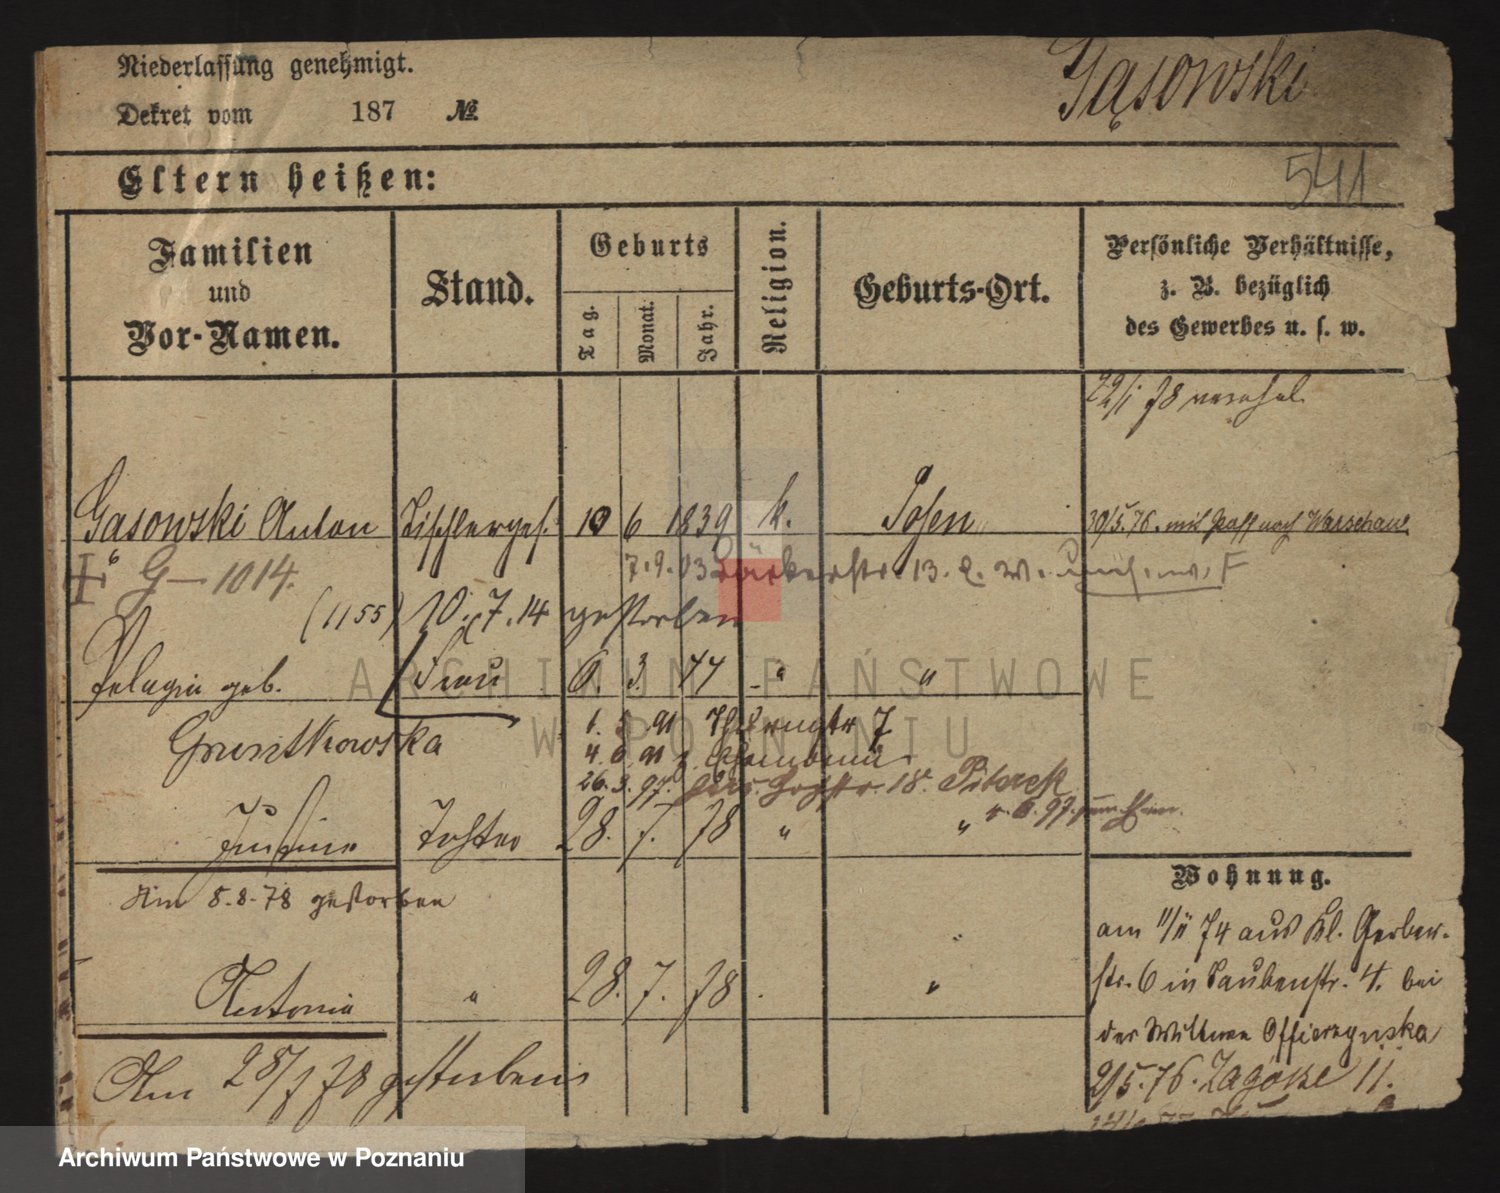 Niederlassung genehmigt.
Gąsowski
Dekret vom 187 №
541
Eltern heißen:
Familien und Vor-Namen.
Stand.
Geburts
Tag.
Monat.
Jahr.
Religion.
Geburts-Ort.
Persönliche Verhältnisse,
z. B. bezüglich
des Gewerbes u. s. w.
22/1 78 verehel.
Gąsowski Anton Tischlerges. 10 6 1839 k. Posen
30/5.76. mit Paß nach Warschau
G—1014. 7.9.03 Bäckerstr. 13.
(1155) 10.7.14 gestorben
Pelagia geb. Frau 6. 3. 44 " "
1. 5. 91
Gruntkowska
4. 6. 91
26.3.97. 18. Piterek
Justine Tochter 28. 7. 78 " "
Wohnung.
Am 5.8.78 gestorben
am 11/11 74 aus Kl. Gerber-
str. 6 in Taubenstr. 4. bei
Antonia " 28. 7. 78 "
der Wittwe Offierzynska
Am 28/7 78 gestorben
2/5.76. Zagórze 11.
ARCHIWUM PAŃSTWOWE
W POZNANIU
Archiwum Państwowe w Poznaniu